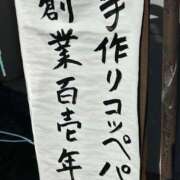 手作りコッペパ
創業百壱年